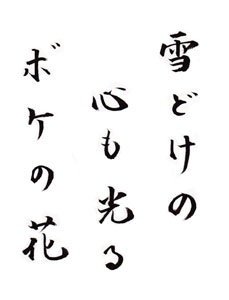 雪どけの
心も光る
ボケの花